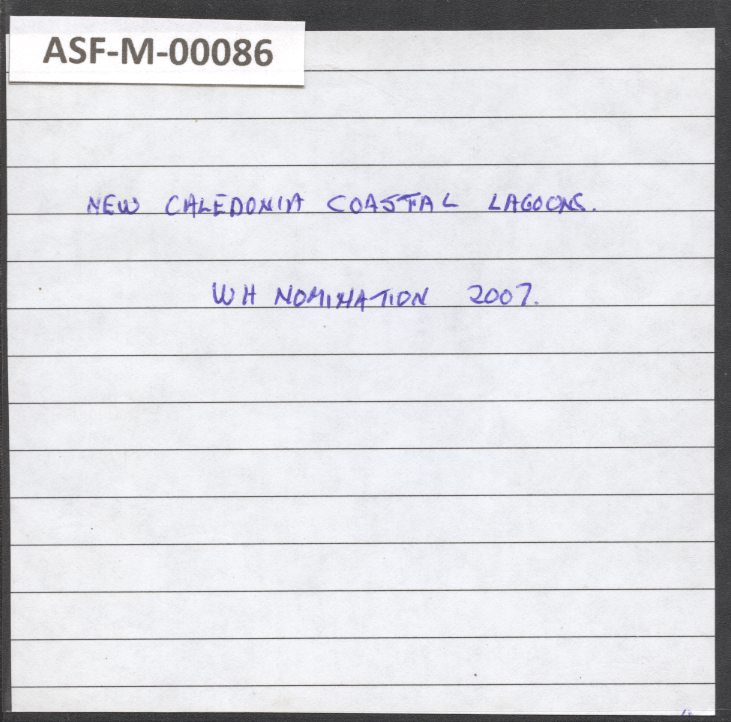 ASF-M-00086
NEW CALEDONIA COASTAL LAGOONS.
WH NOMINATION 2007.